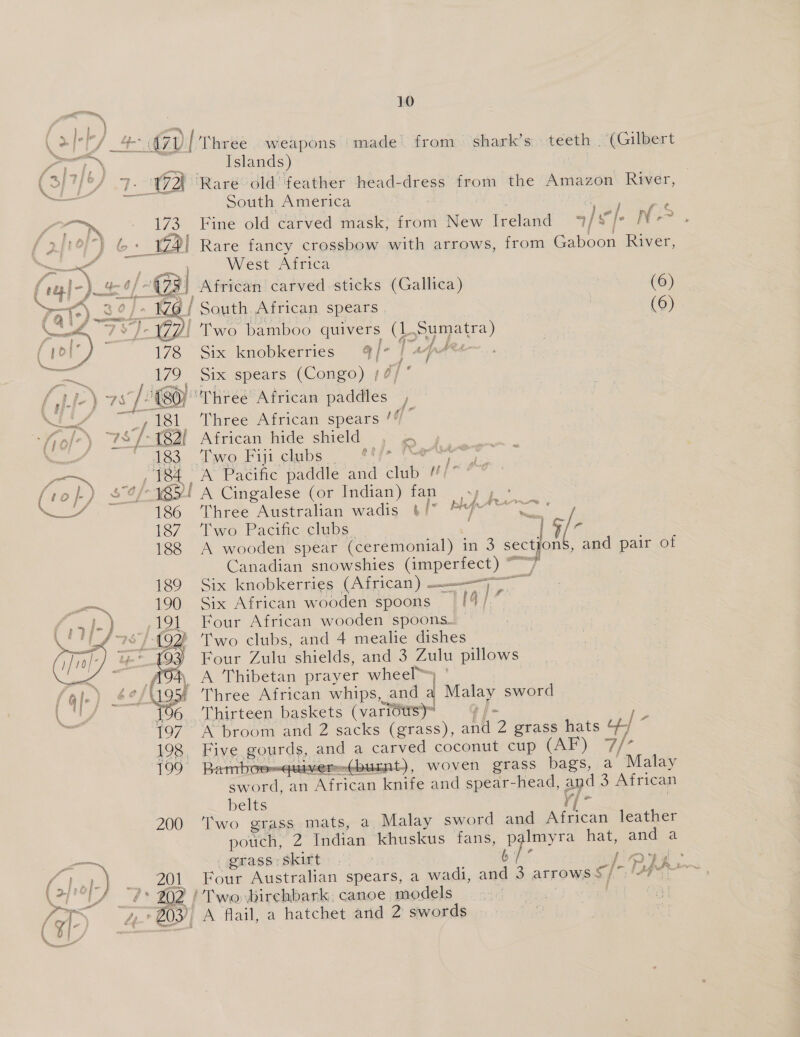 10
(2/-/-) 4- 171 Three weapons made from shark's teeth (Gilbert
Islands)
(3/7/6) 7- 172 Rare old feather head-dress from the Amazon River,
South America
173 Fine old carved mask, from New Ireland
(2/10/-) 6- 174 Rare fancy crossbow with arrows, from Gaboon River,
West Africa
175 African carved sticks (Gallica) (6)
176 South African spears (6)
177 Two bamboo quivers (1 Sumatra)
(10/-) 178 Six knobkerries 9/-
179 Six spears (Congo) 10/-
180 Three African paddles
181 Three African spears
(10/-) 182 African hide shield
183 Two Fiji clubs
184 A Pacific paddle and club
(10/-) 185 A Cingalese (or Indian) fan
186 Three Australian wadis
187 Two Pacific clubs
188 A wooden spear (ceremonial) in 3 sections, and pair of
Canadian snowshies (imperfect)
189 Six knobkerries (African)
190 Six African wooden spoons 14/-
191 Four African wooden spoons
192 Two clubs, and 4 mealie dishes
(1/10/-) 193 Four Zulu shields, and 3 Zulu pillows
194 A Thibetan prayer wheel
195 Three African whips, and a Malay sword
196 Thirteen baskets (various)
197 A broom and 2 sacks (grass), and 2 grass hats 4/-
198 Five gourds, and a carved coconut cup (AF) 7/-
199 Bamboo quiver (burnt), woven grass bags, a Malay
sword, an African knife and spear-head, and 3 African
belts
200 Two grass mats, a Malay sword and African leather
pouch, 2 Indian khuskus fans, palmyra hat, and a
grass skirt 6/-
201 Four Australian spears, a wadi, and 3 arrows 5/-
(2/10/-) 202 Two birchbark canoe models
203 A flail, a hatchet and 2 swords